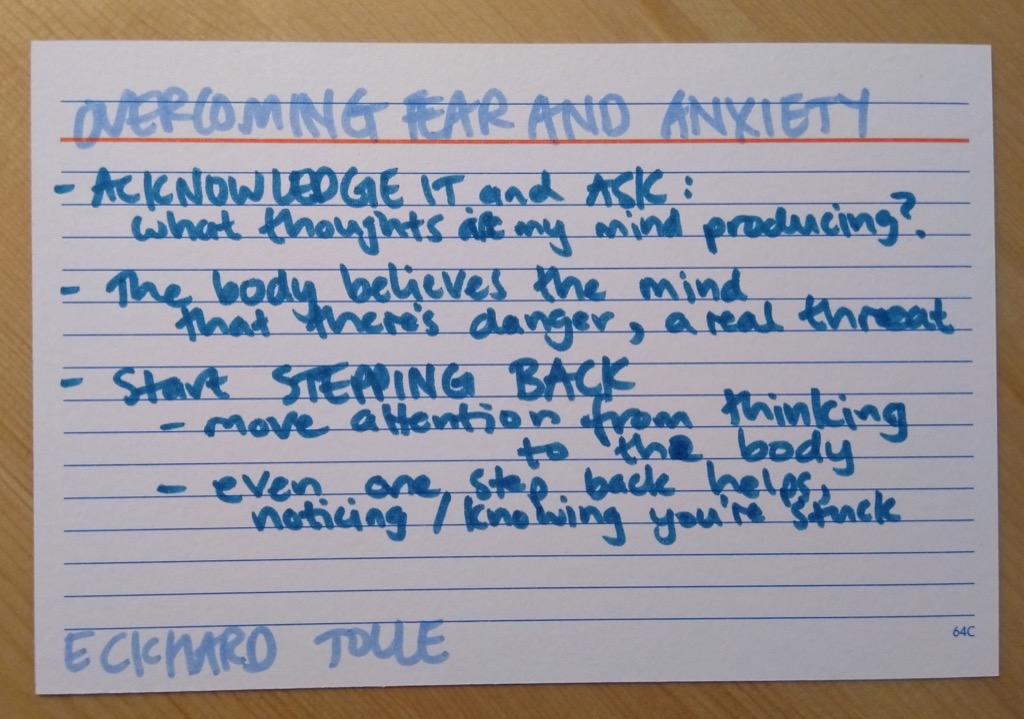 OVERCOMING FEAR AND ANXIETY
- ACKNOWLEDGE IT and ASK:
what thoughts is my mind producing?
- The body believes the mind
that there's danger, a real threat
- Start STEPPING BACK
- move attention from thinking
to the body
- even one step back helps,
noticing / knowing you're stuck
ECKHARD TOLLE
64C